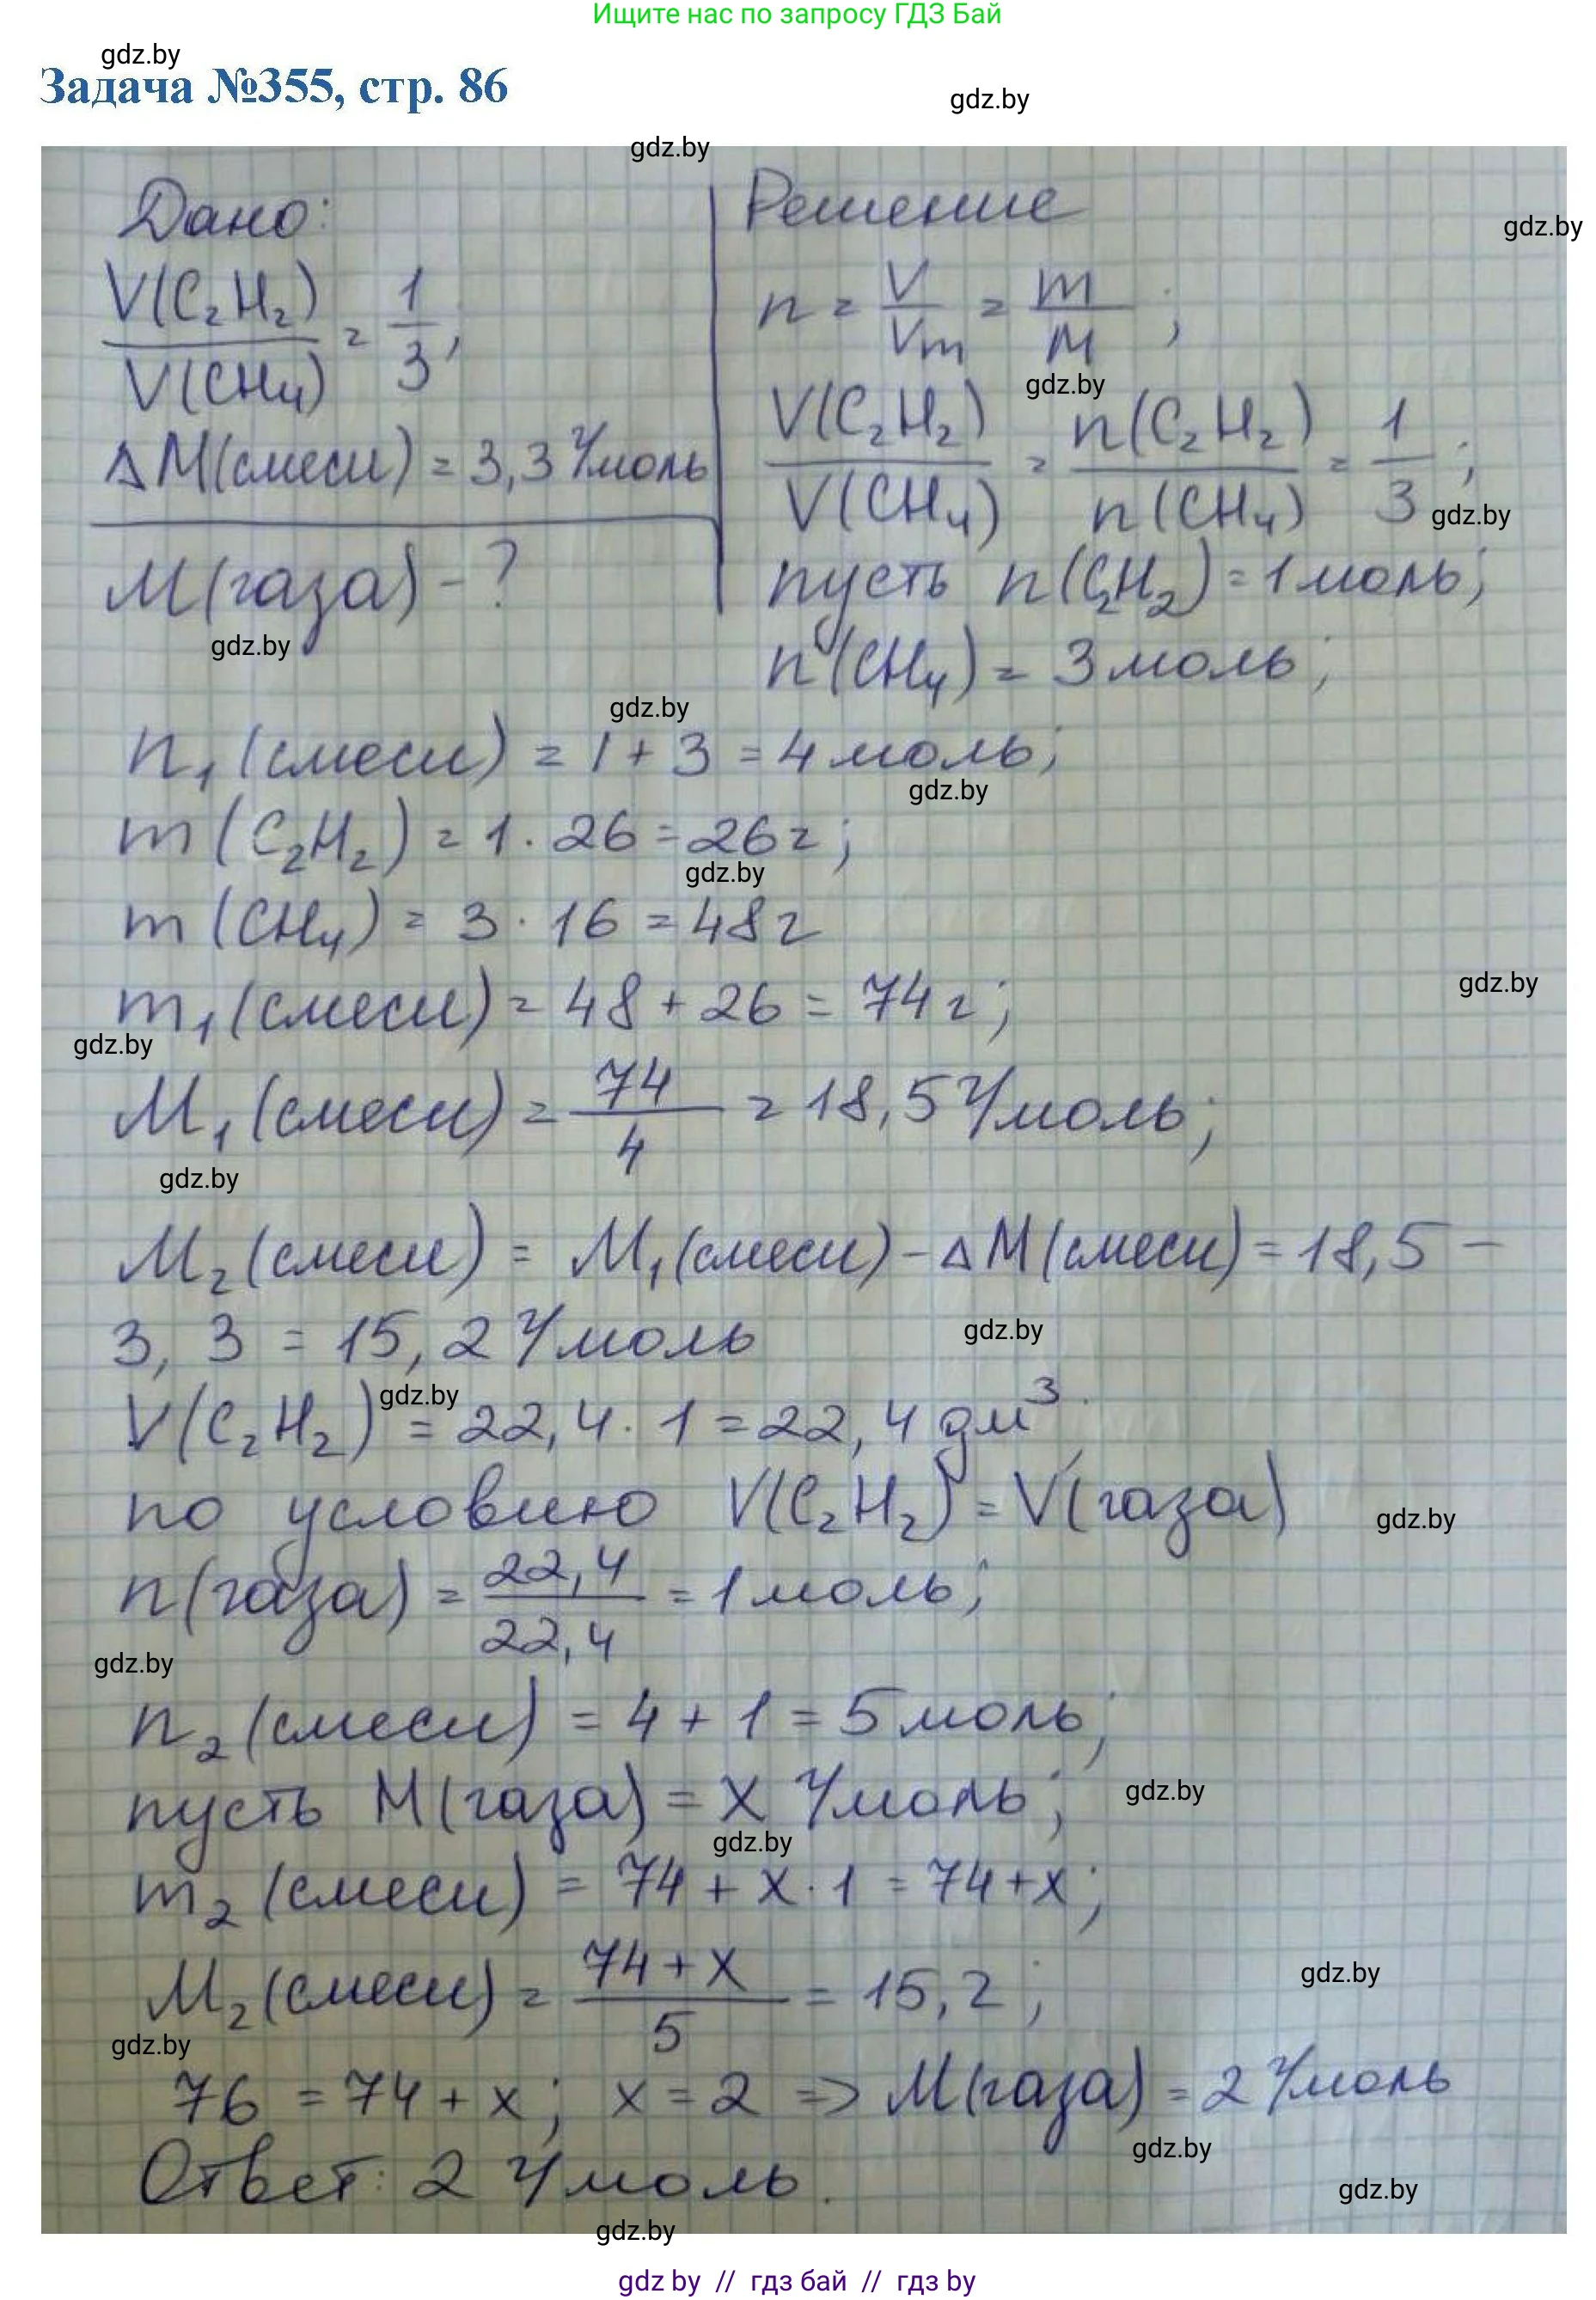 Ищите нас по запросу ГДЗ Бай
gdz.by
Задача №355, стр. 86
gdz.by
gdz.by
Дано:
V(C₂H₂)/V(CH₄) = 1/3;
ΔM(смеси) = 3,3 г/моль
M(газа) - ?
gdz.by
Решение
gdz.by
n = V/Vm = m/M;
gdz.by
V(C₂H₂)/V(CH₄) = n(C₂H₂)/n(CH₄) = 1/3;
gdz.by
пусть n(C₂H₂) = 1 моль;
n(CH₄) = 3 моль;
gdz.by
n₁(смеси) = 1 + 3 = 4 моль;
gdz.by
m(C₂H₂) = 1 · 26 = 26 г;
gdz.by
m(CH₄) = 3 · 16 = 48 г
gdz.by
m₁(смеси) = 48 + 26 = 74 г;
gdz.by
M₁(смеси) = 74/4 = 18,5 г/моль;
gdz.by
M₂(смеси) = M₁(смеси) - ΔM(смеси) = 18,5 -
3,3 = 15,2 г/моль
gdz.by
gdz.by
V(C₂H₂) = 22,4 · 1 = 22,4 дм³
по условию V(C₂H₂) = V(газа)
gdz.by
n(газа) = 22,4/22,4 = 1 моль;
gdz.by
n₂(смеси) = 4 + 1 = 5 моль;
пусть M(газа) = x г/моль;
gdz.by
gdz.by
m₂(смеси) = 74 + x · 1 = 74 + x;
M₂(смеси) = 74 + x/5 = 15,2;
gdz.by
gdz.by
76 = 74 + x; x = 2 => M(газа) = 2 г/моль
gdz.by
Ответ: 2 г/моль.
gdz.by
gdz.by
gdz by // гдз бай // гдз by